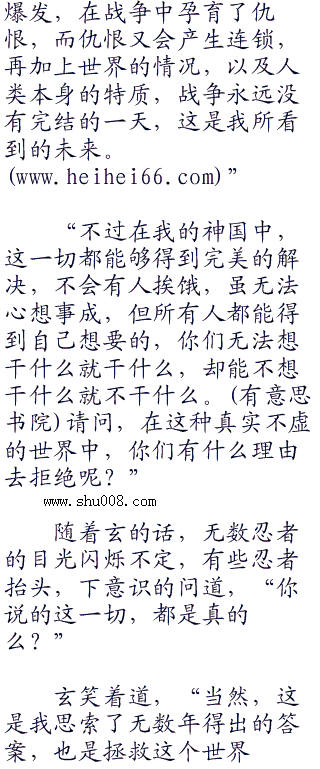 爆发，在战争中孕育了仇
恨，而仇恨又会产生连锁，
再加上世界的情况，以及人
类本身的特质，战争永远没
有完结的一天，这是我所看
到的未来。
(www.heihei66.com)”
“不过在我的神国中，
这一切都能够得到完美的解
决，不会有人挨饿，虽无法
心想事成，但所有人都能得
到自己想要的，你们无法想
干什么就干什么，却能不想
干什么就不干什么。(有意思
书院)请问，在这种真实不虚
的世界中，你们有什么理由
去拒绝呢？”
www.shu008.com
随着玄的话，无数忍者
的目光闪烁不定，有些忍者
抬头，下意识的问道，“你
说的这一切，都是真的
么？”
玄笑着道，“当然，这
是我思索了无数年得出的答
案，也是拯救这个世界